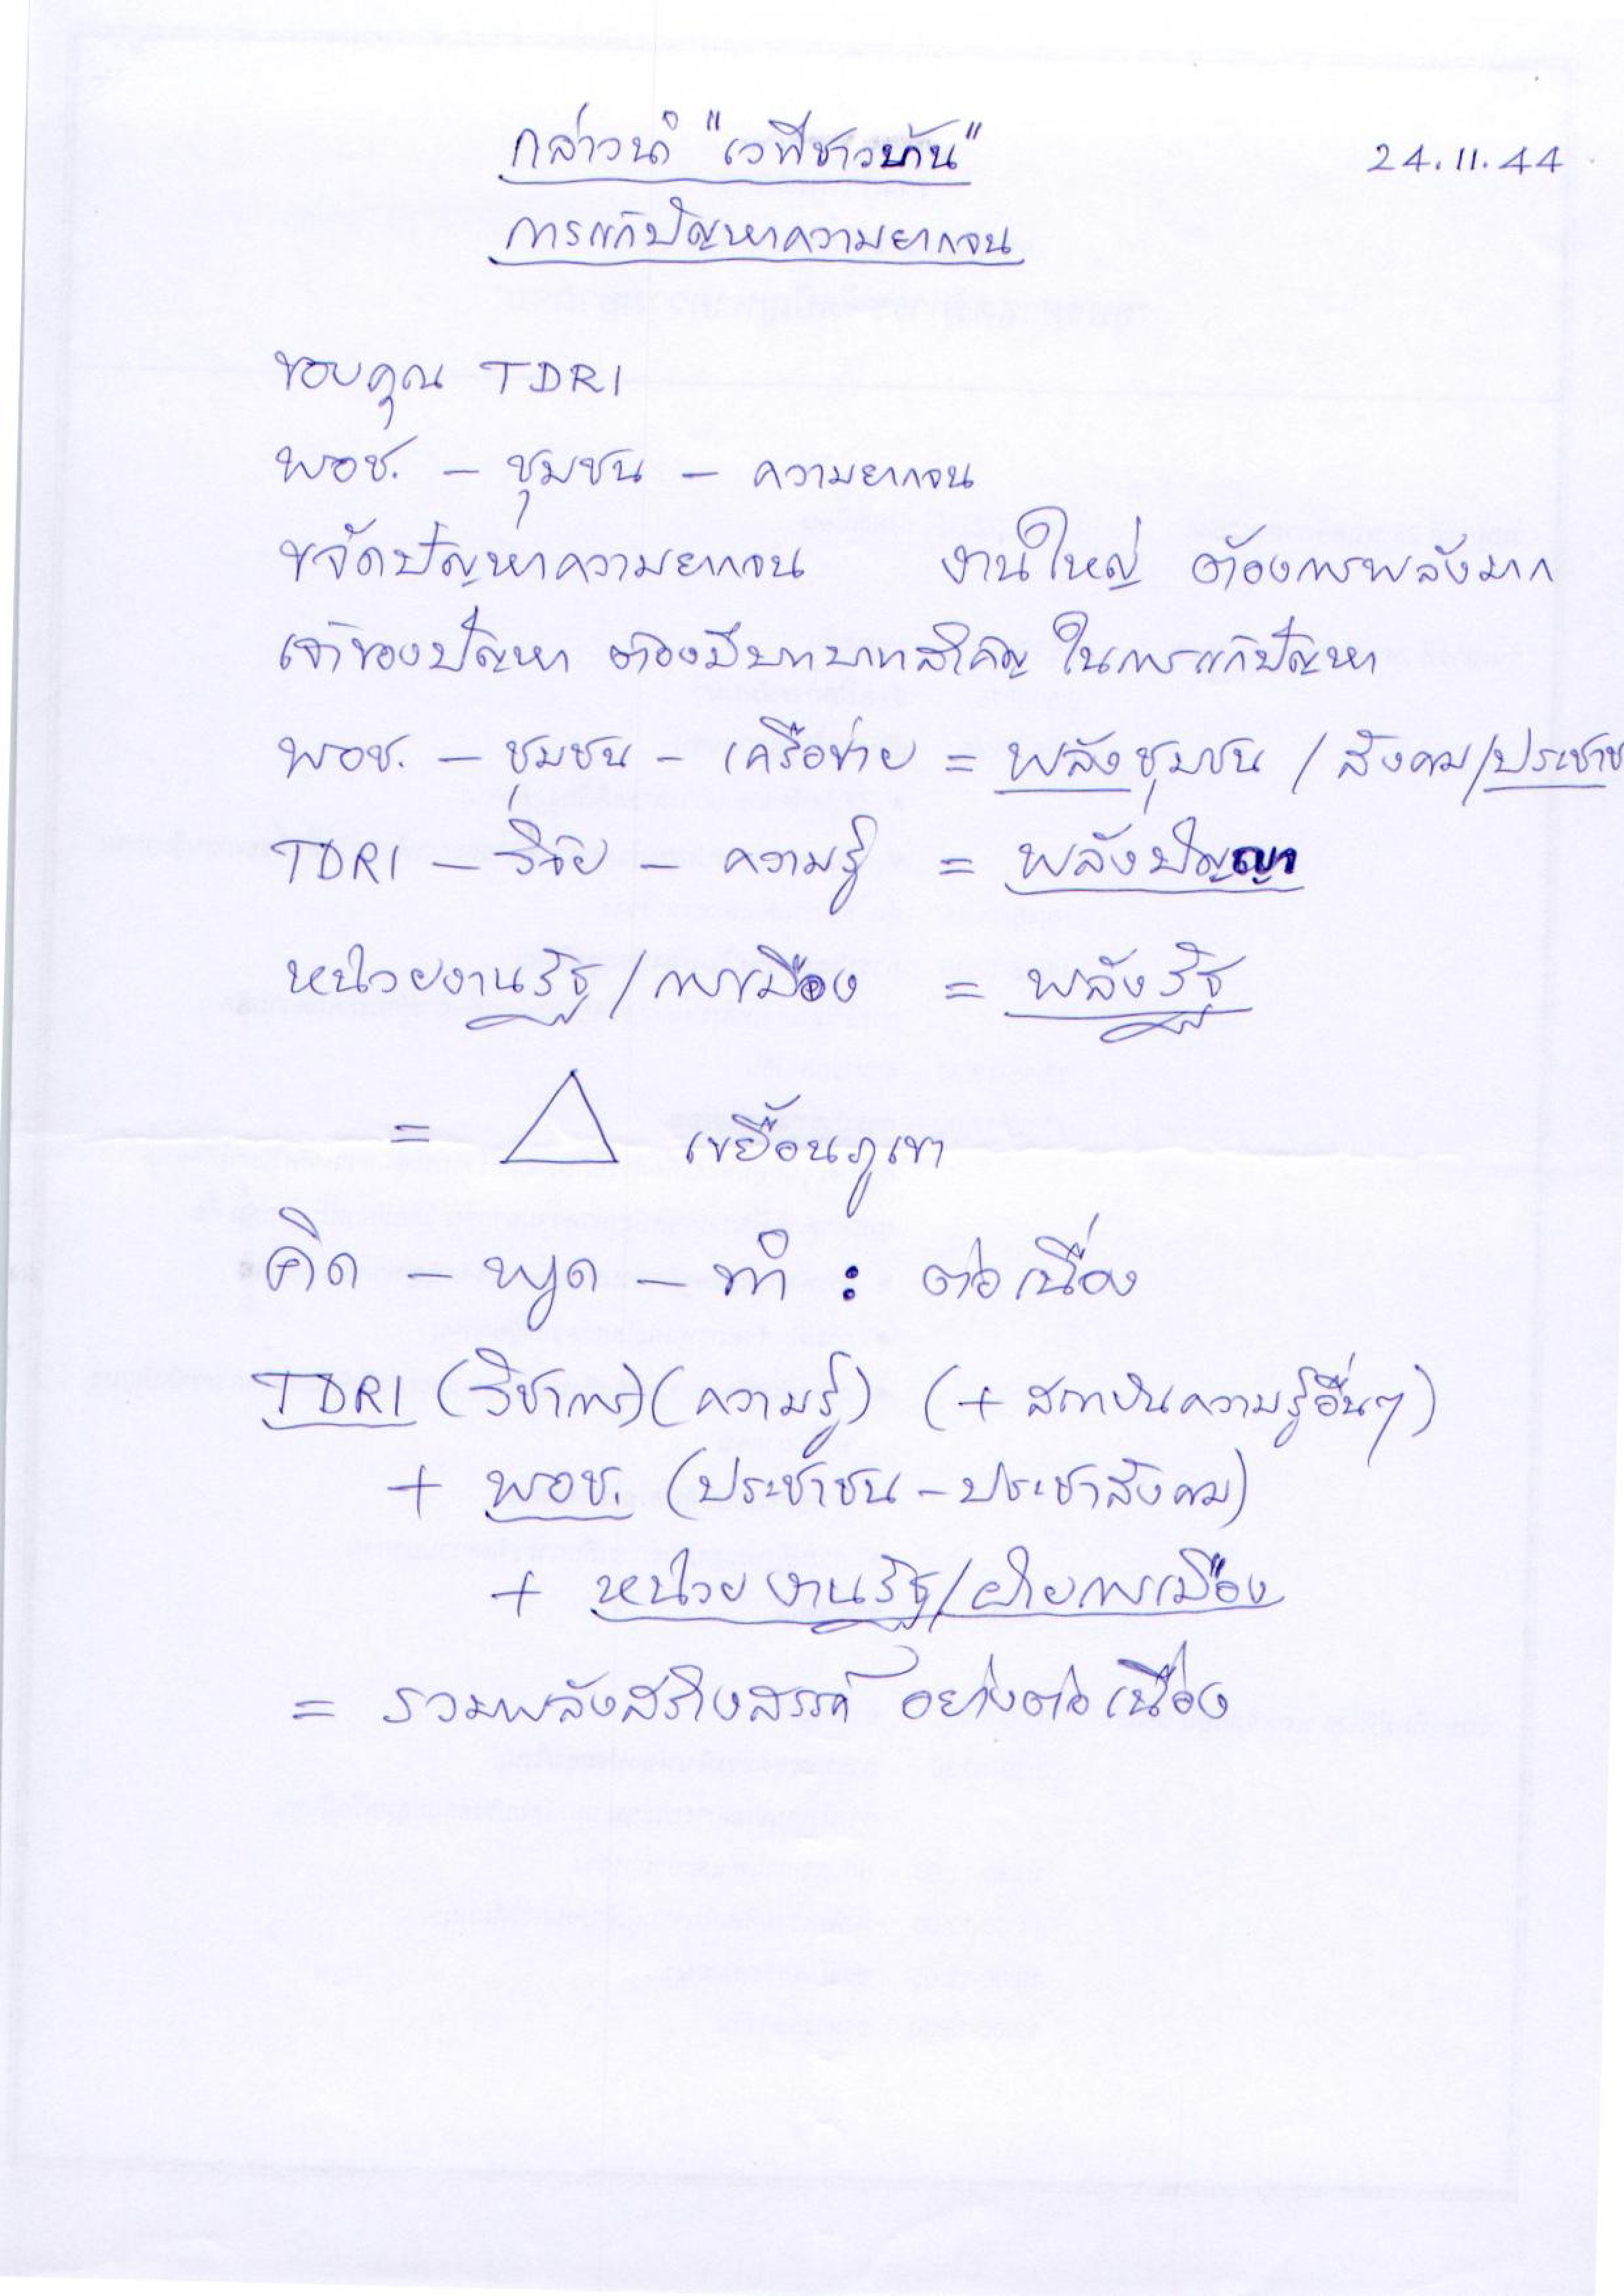 กล่าวนำ "เวทีชาวบ้าน"
24.11.44
การแก้ปัญหาความยากจน
ขอบคุณ TDRI
พอช. – ชุมชน – ความยากจน
ขจัดปัญหาความยากจน งานใหญ่ ต้องการพลังมาก
เจ้าของปัญหา ต้องมีบทบาทสำคัญ ในการแก้ปัญหา
พอช. – ชุมชน – เครือข่าย = พลังชุมชน / สังคม / ประชาช
TDRI – วิจัย – ความรู้ = พลังปัญญา
หน่วยงานรัฐ / การเมือง = พลังรัฐ
= △ เขยื้อนภูเขา
คิด – พูด – ทำ : ต่อเนื่อง
TDRI (วิชาการ) (ความรู้) (+ สถาบันความรู้อื่นๆ)
+ พอช. (ประชาชน – ประชาสังคม)
+ หน่วยงานรัฐ / ฝ่ายการเมือง
= รวมพลังสร้างสรรค์ อย่างต่อเนื่อง